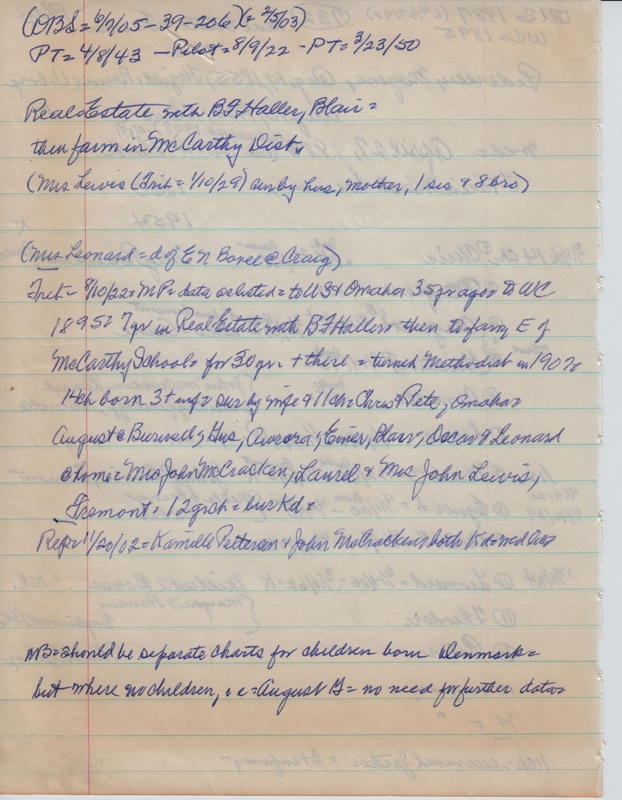 (OBS = 6/7/05-39-206) (& 2/5/03)
PT = 4/8/43 - Pilot = 8/9/22 - PT = 3/23/50
Real Estate with B F Haller, Blair =
then farm in McCarthy Dist,
(Mrs Lewis (Trib = 1/10/29) sur by hus, mother, 1 sis & 8 bro)
(Mrs Leonard = d of E N Boree @ Craig)
Trib = 8/10/22 = MP = data as listed = to US & Omaha 35 yr ago = to WC
1895 = 7 yr in Real Estate with B F Haller = then to farm E of
McCarthy School = for 30 yr + there = turned Methodist in 1907 =
14 ch born 3 + inf = sur by wife & 11 ch = Chris & Pete, Omaha =
August @ Burwell; Gus, Aurora; Emer, Blair; Oscar & Leonard
@ home = Mrs John McCracken, Laurel & Mrs John Lewis,
Fremont = 12 grch = bur Kd =
11/20/02 = Kamille Petterson & John McCracken both Kd = med
NB = should be separate charts for children born Denmark =
but where no children, i e = August G = no need for further data =